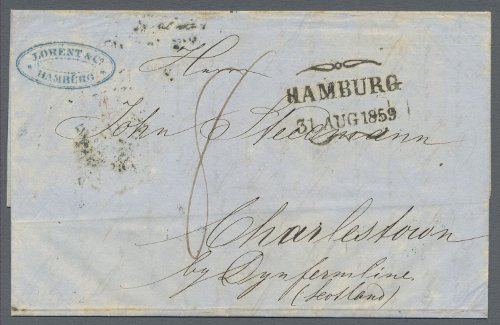 LORENT & Co
HAMBURG
Herrn
HAMBURG
31 AUG 1859
John Stedemann
8
Charlestown
by Dynfermline
(Scotland)